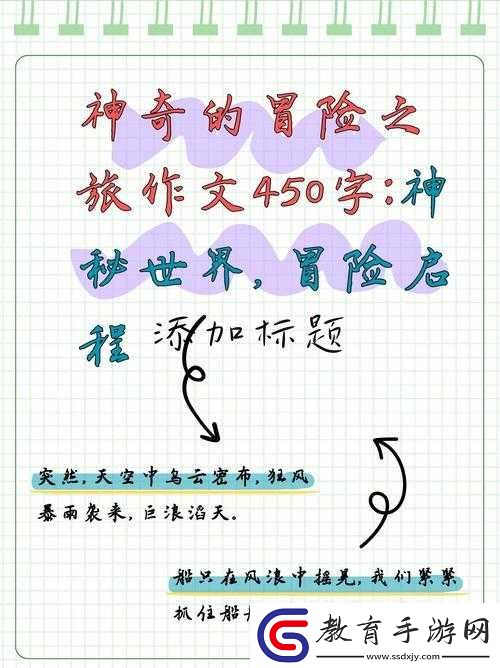 神奇的冒险之
旅作文450字:神
秘世界,冒险启
程 添加标题
突然,天空中乌云密布,狂风
暴雨袭来,巨浪滔天。
船只在风浪中摇晃,我们紧紧
抓住船
教育手游网
www.ssdxjy.com